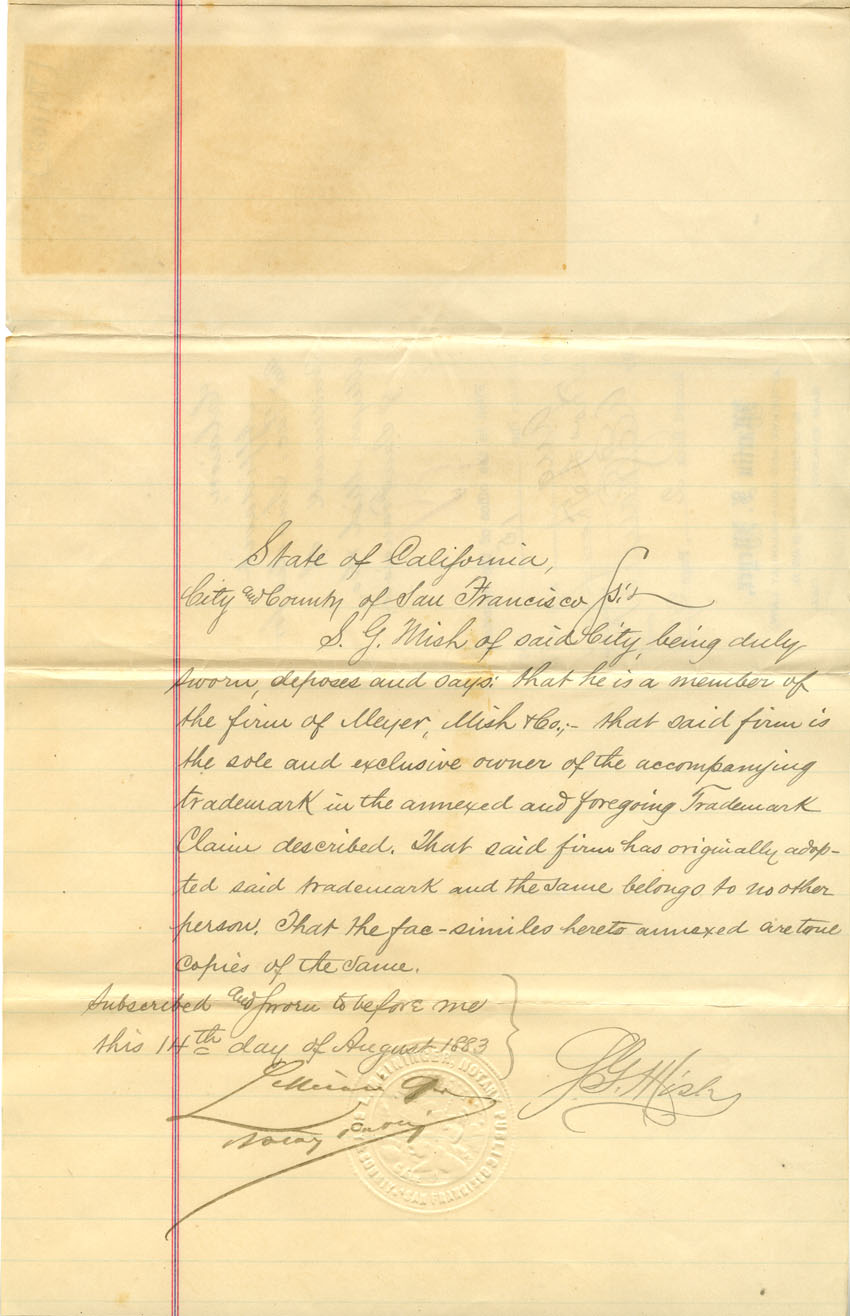 State of California,
City and County of San Francisco } s.s.
S. G. Mish of said City, being duly
sworn, deposes and says: that he is a member of
the firm of Meyer, Mish & Co.;- that said firm is
the sole and exclusive owner of the accompanying
trademark in the annexed and foregoing Trademark
Claim described. That said firm has originally adop-
ted said trademark and the same belongs to no other
person. That the fac-similes hereto annexed are true
copies of the same.
Subscribed and sworn to before me
this 14th day of August 1883
S. G. Mish
Notary Public
NOTARY PUBLIC
SAN FRANCISCO